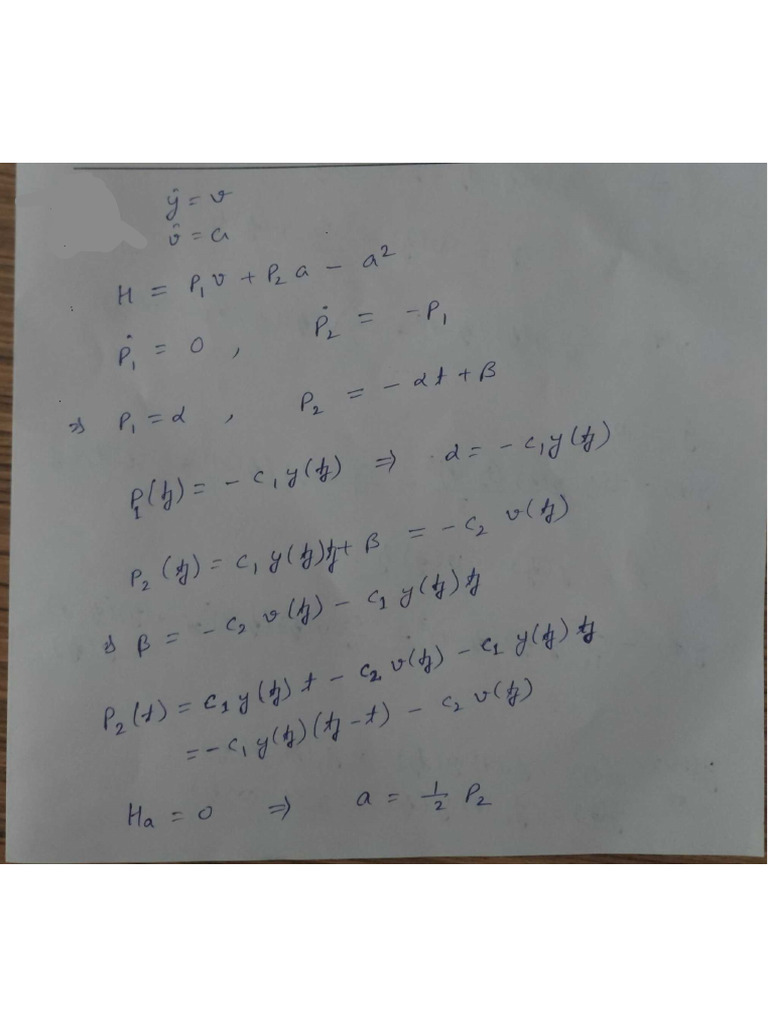 ẏ = v
v̇ = a
H = P₁v + P₂a − a²
Ṗ₁ = 0 , Ṗ₂ = −P₁
⇒ P₁ = α , P₂ = −αt + β
P₁(t_f) = −c₁y(t_f) ⇒ α = −c₁y(t_f)
P₂(t_f) = c₁y(t_f)t_f + β = −c₂ v(t_f)
⇒ β = −c₂ v(t_f) − c₁ y(t_f) t_f
P₂(t) = c₁y(t_f) t − c₂ v(t_f) − c₁ y(t_f) t_f
= −c₁y(t_f)(t_f − t) − c₂ v(t_f)
Hₐ = 0 ⇒ a = ½ P₂